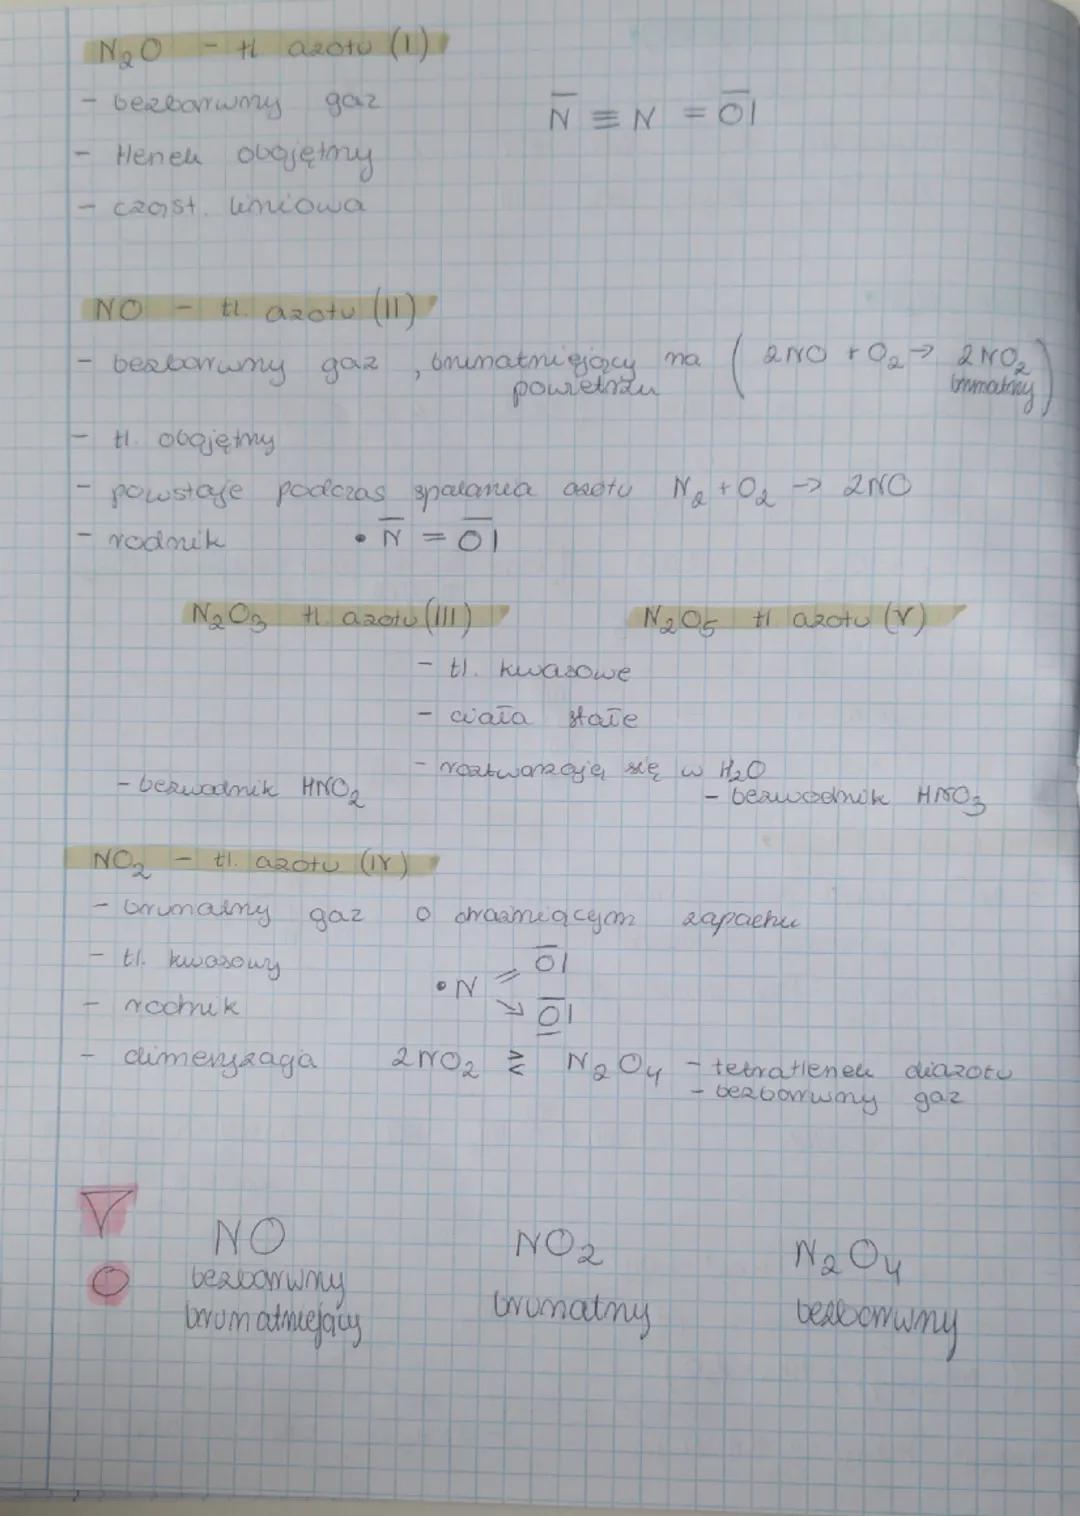 N₂O - tl azotu (I)
- bezbarwny gaz
N̅ ≡ N = O̅|
- tlenek obojętny
- cząst. liniowa
NO - tl. azotu (II)
- bezbarwny gaz, brunatniejący na powietrzu (2NO + O₂ → 2NO₂ brunatny)
- tl. obojętny
- powstaje podczas spalania azotu N₂ + O₂ → 2NO
- rodnik • N̅ = O̅|
N₂O₃ tl. azotu (III) N₂O₅ tl azotu (V)
- tl. kwasowe
- ciała stałe
- roztwarzają się w H₂O
- bezwodnik HNO₂ - bezwodnik HNO₃
NO₂ - tl. azotu (IV)
- brunatny gaz o drażniącym zapachu
- tl. kwasowy
= O̅|
• N
→ O̲̅|
- rodnik
- dimeryzacja 2NO₂ ⇄ N₂O₄ - tetratlenek diazotu
- bezbarwny gaz
NO NO₂ N₂O₄
bezbarwny brunatny bezbarwny
brunatniejący